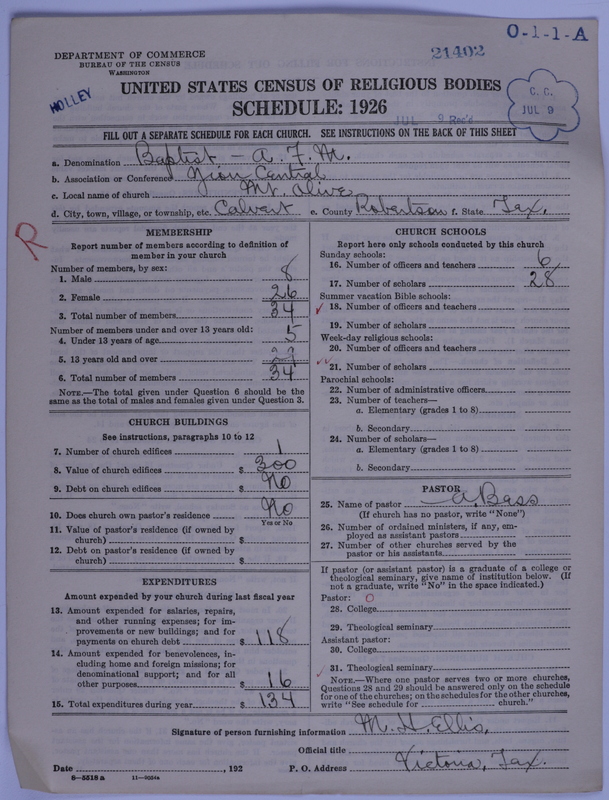 O-1-1-A
21402
DEPARTMENT OF COMMERCE
BUREAU OF THE CENSUS
WASHINGTON
HOLLEY
UNITED STATES CENSUS OF RELIGIOUS BODIES
SCHEDULE: 1926
C. C.
JUL 9
JUL 9 Rec'd
FILL OUT A SEPARATE SCHEDULE FOR EACH CHURCH. SEE INSTRUCTIONS ON THE BACK OF THIS SHEET
a. Denomination Baptist, - A. F. M.
b. Association or Conference Zion Central
c. Local name of church Mt. Olive
d. City, town, village, or township, etc. Calvert e. County Robertson f. State Tex.
R
MEMBERSHIP
Report number of members according to definition of
member in your church
Number of members, by sex:
1. Male 8
2. Female 26
3. Total number of members 34
Number of members under and over 13 years old:
4. Under 13 years of age 5
5. 13 years old and over
6. Total number of members 34
NOTE.—The total given under Question 6 should be the
same as the total of males and females given under Question 3.
CHURCH BUILDINGS
See instructions, paragraphs 10 to 12
7. Number of church edifices 1
8. Value of church edifices $ 300
9. Debt on church edifices $ No
10. Does church own pastor's residence No
Yes or No
11. Value of pastor's residence (if owned by
church) $
12. Debt on pastor's residence (if owned by
church) $
EXPENDITURES
Amount expended by your church during last fiscal year
13. Amount expended for salaries, repairs,
and other running expenses; for im-
provements or new buildings; and for
payments on church debt $ 118
14. Amount expended for benevolences, in-
cluding home and foreign missions; for
denominational support; and for all
other purposes $ 16
15. Total expenditures during year $ 134
CHURCH SCHOOLS
Report here only schools conducted by this church
Sunday schools:
16. Number of officers and teachers 6
17. Number of scholars 28
Summer vacation Bible schools:
18. Number of officers and teachers
19. Number of scholars
Week-day religious schools:
20. Number of officers and teachers
21. Number of scholars
Parochial schools:
22. Number of administrative officers
23. Number of teachers—
a. Elementary (grades 1 to 8)
b. Secondary
24. Number of scholars—
a. Elementary (grades 1 to 8)
b. Secondary
PASTOR
25. Name of pastor A. Bass
(If church has no pastor, write "None")
26. Number of ordained ministers, if any, em-
ployed as assistant pastors
27. Number of other churches served by the
pastor or his assistants
If pastor (or assistant pastor) is a graduate of a college or
theological seminary, give name of institution below. (If
not a graduate, write "No" in the space indicated.)
Pastor: O
28. College
29. Theological seminary
Assistant pastor:
30. College
31. Theological seminary
NOTE.—Where one pastor serves two or more churches,
Questions 28 and 29 should be answered only on the schedule
for one of the churches; on the schedules for the other churches,
write "See schedule for church."
Signature of person furnishing information M. H. Ellis,
Official title
Date , 192 P. O. Address Victoria, Tex.
8-5518 a 11-9034a